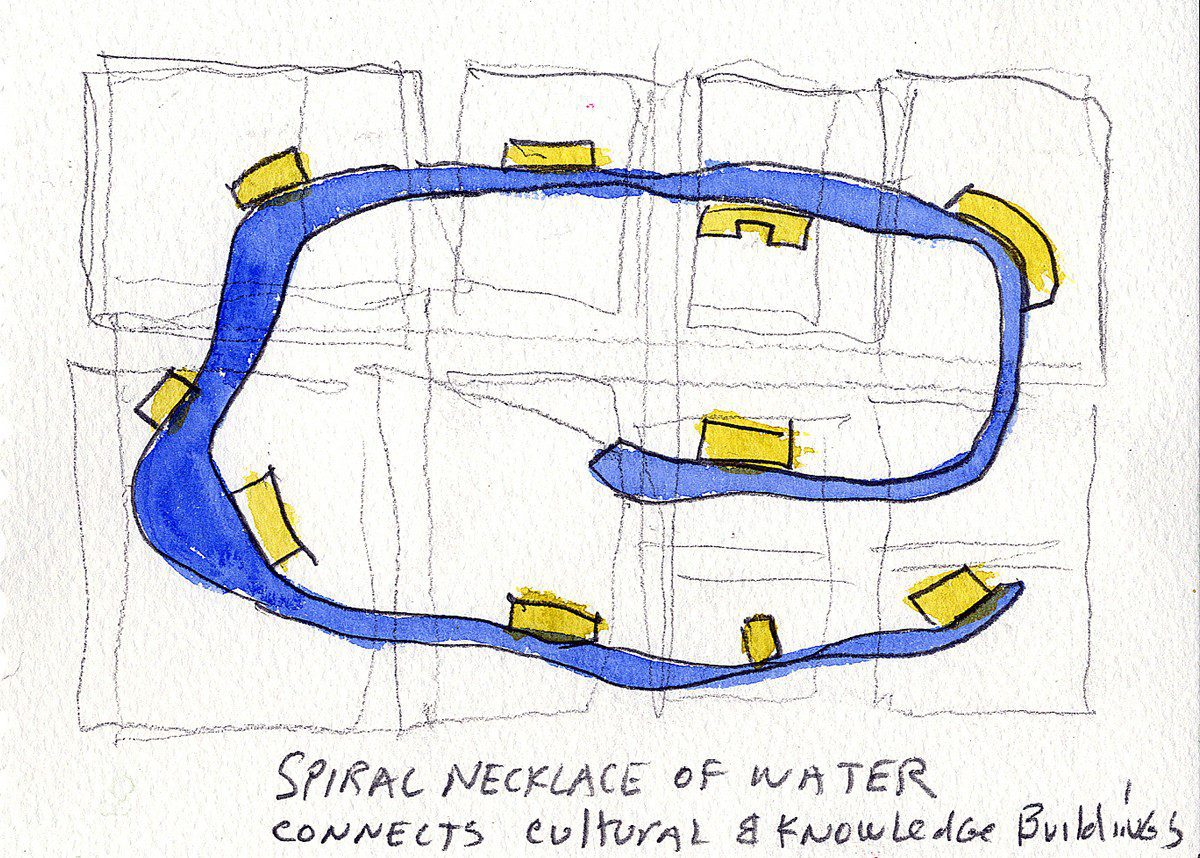 SPIRAL NECKLACE OF WATER
CONNECTS CULTURAL & KNOWLEDGE BUILDINGS